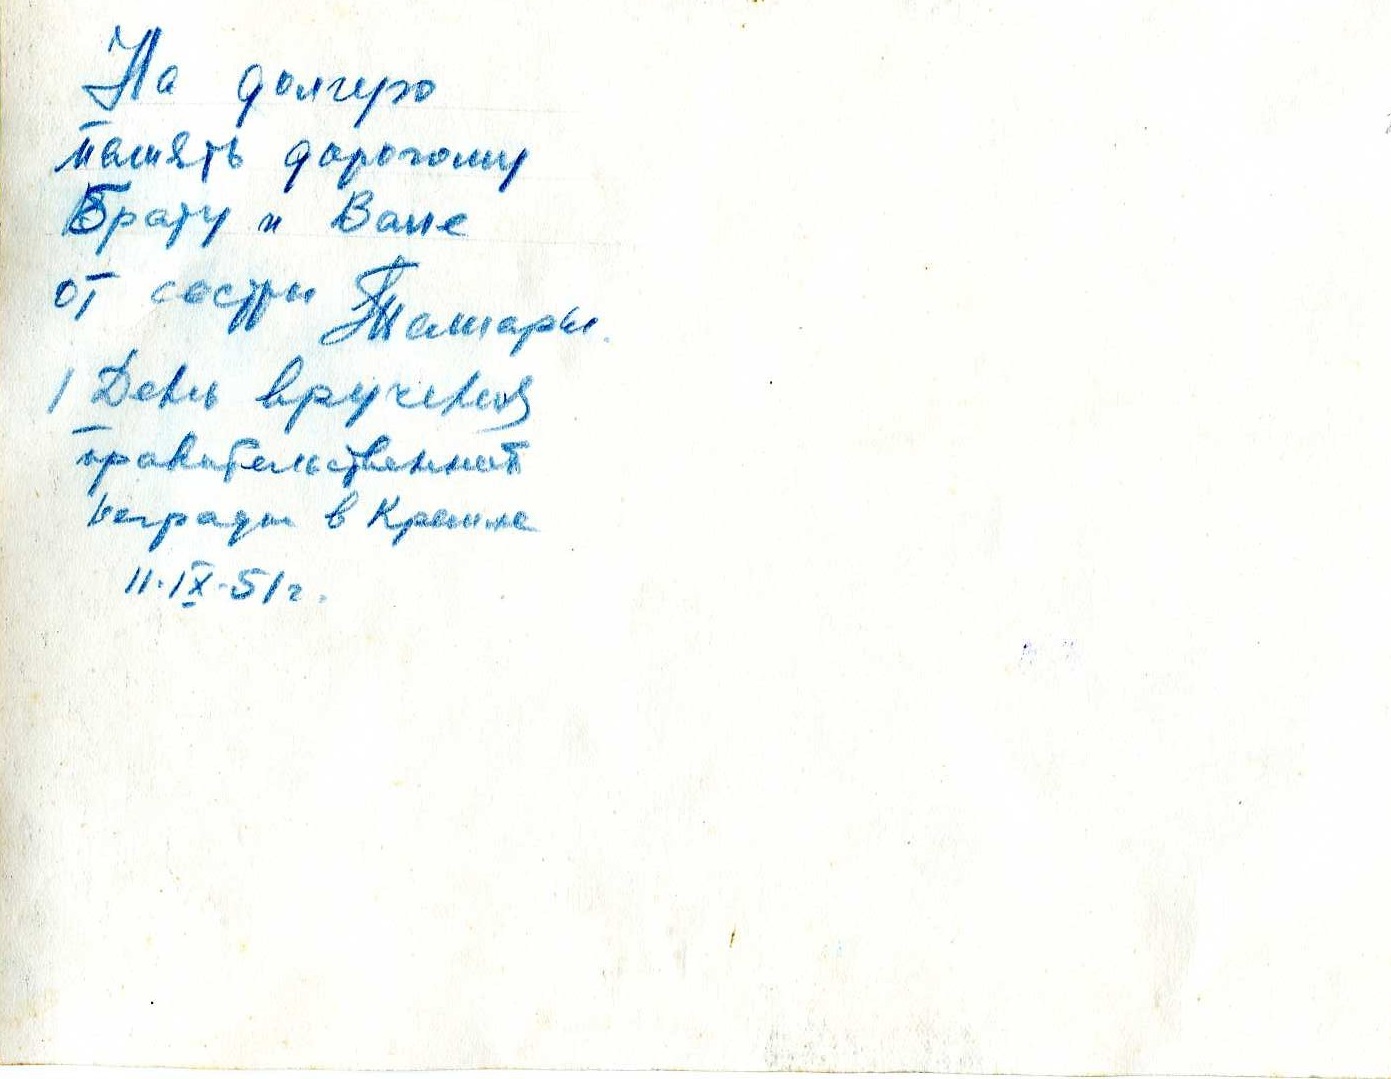 На долгую
память дорогому
Брату и Ване
от сестры Тамары.
/ День вручения
правительственной
награды в Кремле
11·IX·51г.